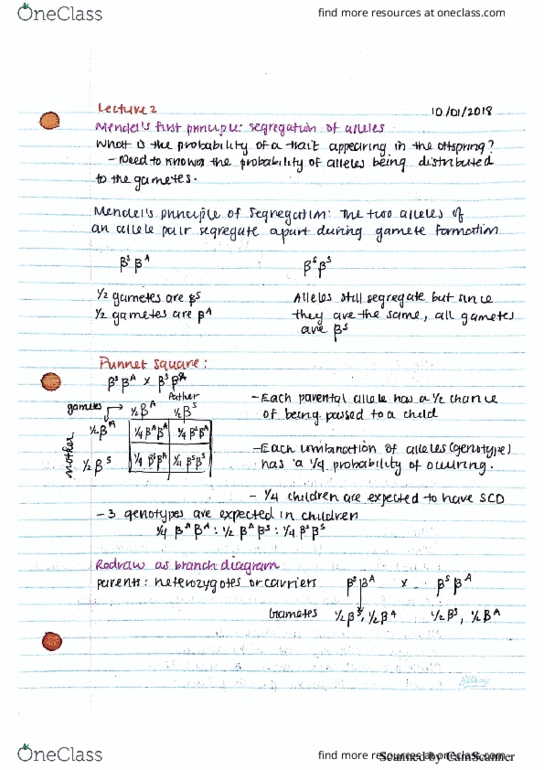 OneClass
find more resources at oneclass.com
Lecture 2
10/01/2018
Mendel's first principle: segregation of alleles
What is the probability of a trait appearing in the offspring?
- Need to known the probability of alleles being distributed
to the gametes.
Mendel's principle of segregation: The two alleles of
an allele pair segregate apart during gamete formation
βˢ βᴬ
βˢ βˢ
½ gametes are βˢ
½ gametes are βᴬ
Alleles still segregate but since
they are the same, all gametes
are βˢ
Punnet square:
βˢ βᴬ x βˢ βᴬ
Father
gametes
½ βᴬ ½ βˢ
mother
½ βᴬ ¼ βᴬ βᴬ ¼ βˢ βᴬ
½ βˢ ¼ βˢ βᴬ ¼ βˢ βˢ
- Each parental allele has a ½ chance
of being passed to a child
- Each combination of alleles (genotype)
has a ¼ probability of occuring.
- ¼ children are expected to have SCD
- 3 genotypes are expected in children
¼ βᴬ βᴬ : ½ βᴬ βˢ : ¼ βˢ βˢ
Redraw as branch diagram
parents: heterozygotes or carriers βˢ βᴬ x βˢ βᴬ
Gametes ½ βˢ, ½ βᴬ ½ βˢ, ½ βᴬ
OneClass
find more resources at oneclass.com
Scanned by CamScanner